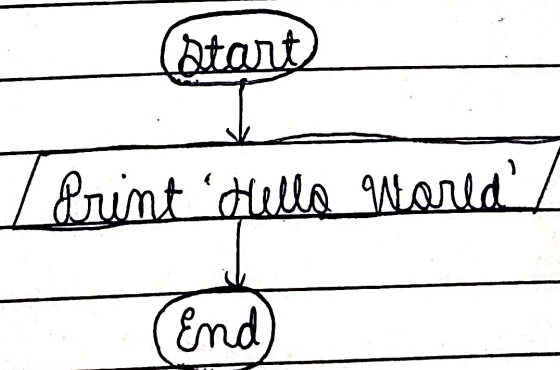 Start
Print 'Hello World'
End